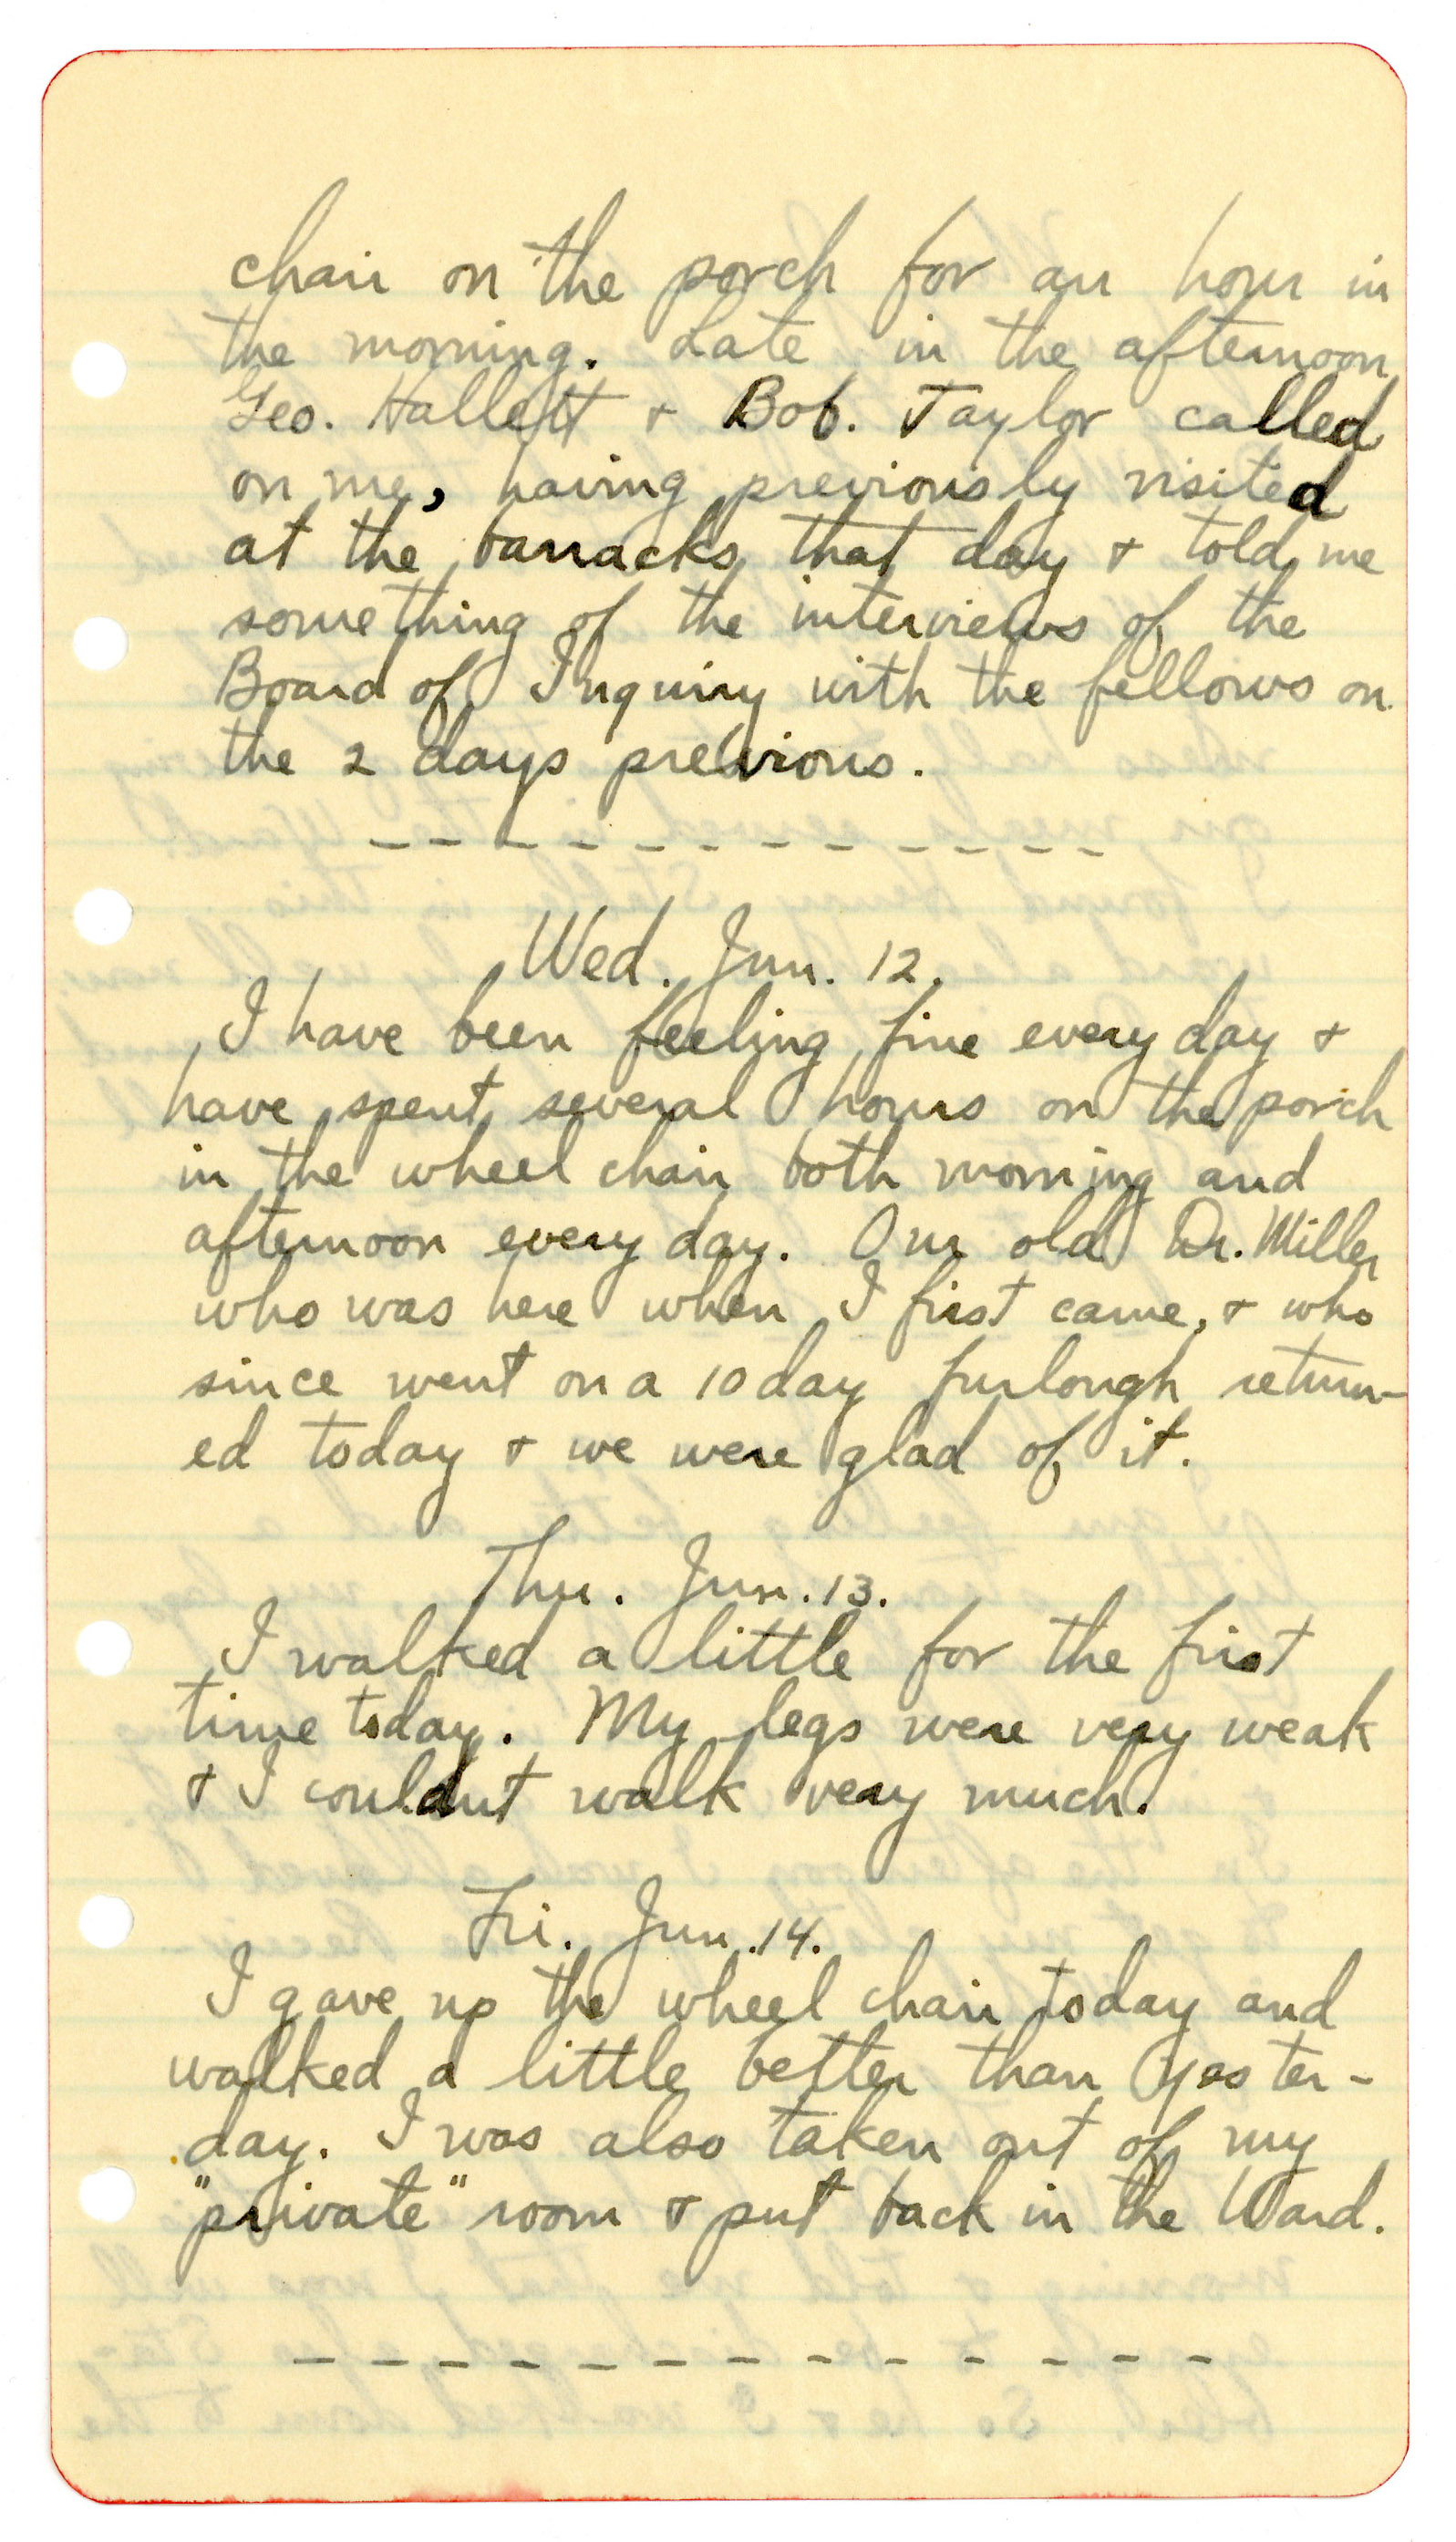 chair on the porch for an hour in
the morning. Late in the afternoon
Geo. Hallett + Bob. Taylor called
on me, having previously visited
at the barracks that day + told me
something of the interviews of the
Board of Inquiry with the fellows on
the 2 days previous.
Wed. Jun. 12.
I have been feeling fine every day +
have spent several hours on the porch
in the wheel chair both morning and
afternoon every day. Our old Dr. Miller
who was here when I first came, + who
since went on a 10 day furlough return-
ed today + we were glad of it.
Thu. Jun. 13.
I walked a little for the first
time today. My legs were very weak
+ I couldnt walk very much.
Fri. Jun. 14.
I gave up the wheel chair today and
walked a little better than yester-
day. I was also taken out of my
"private" room + put back in the Ward.